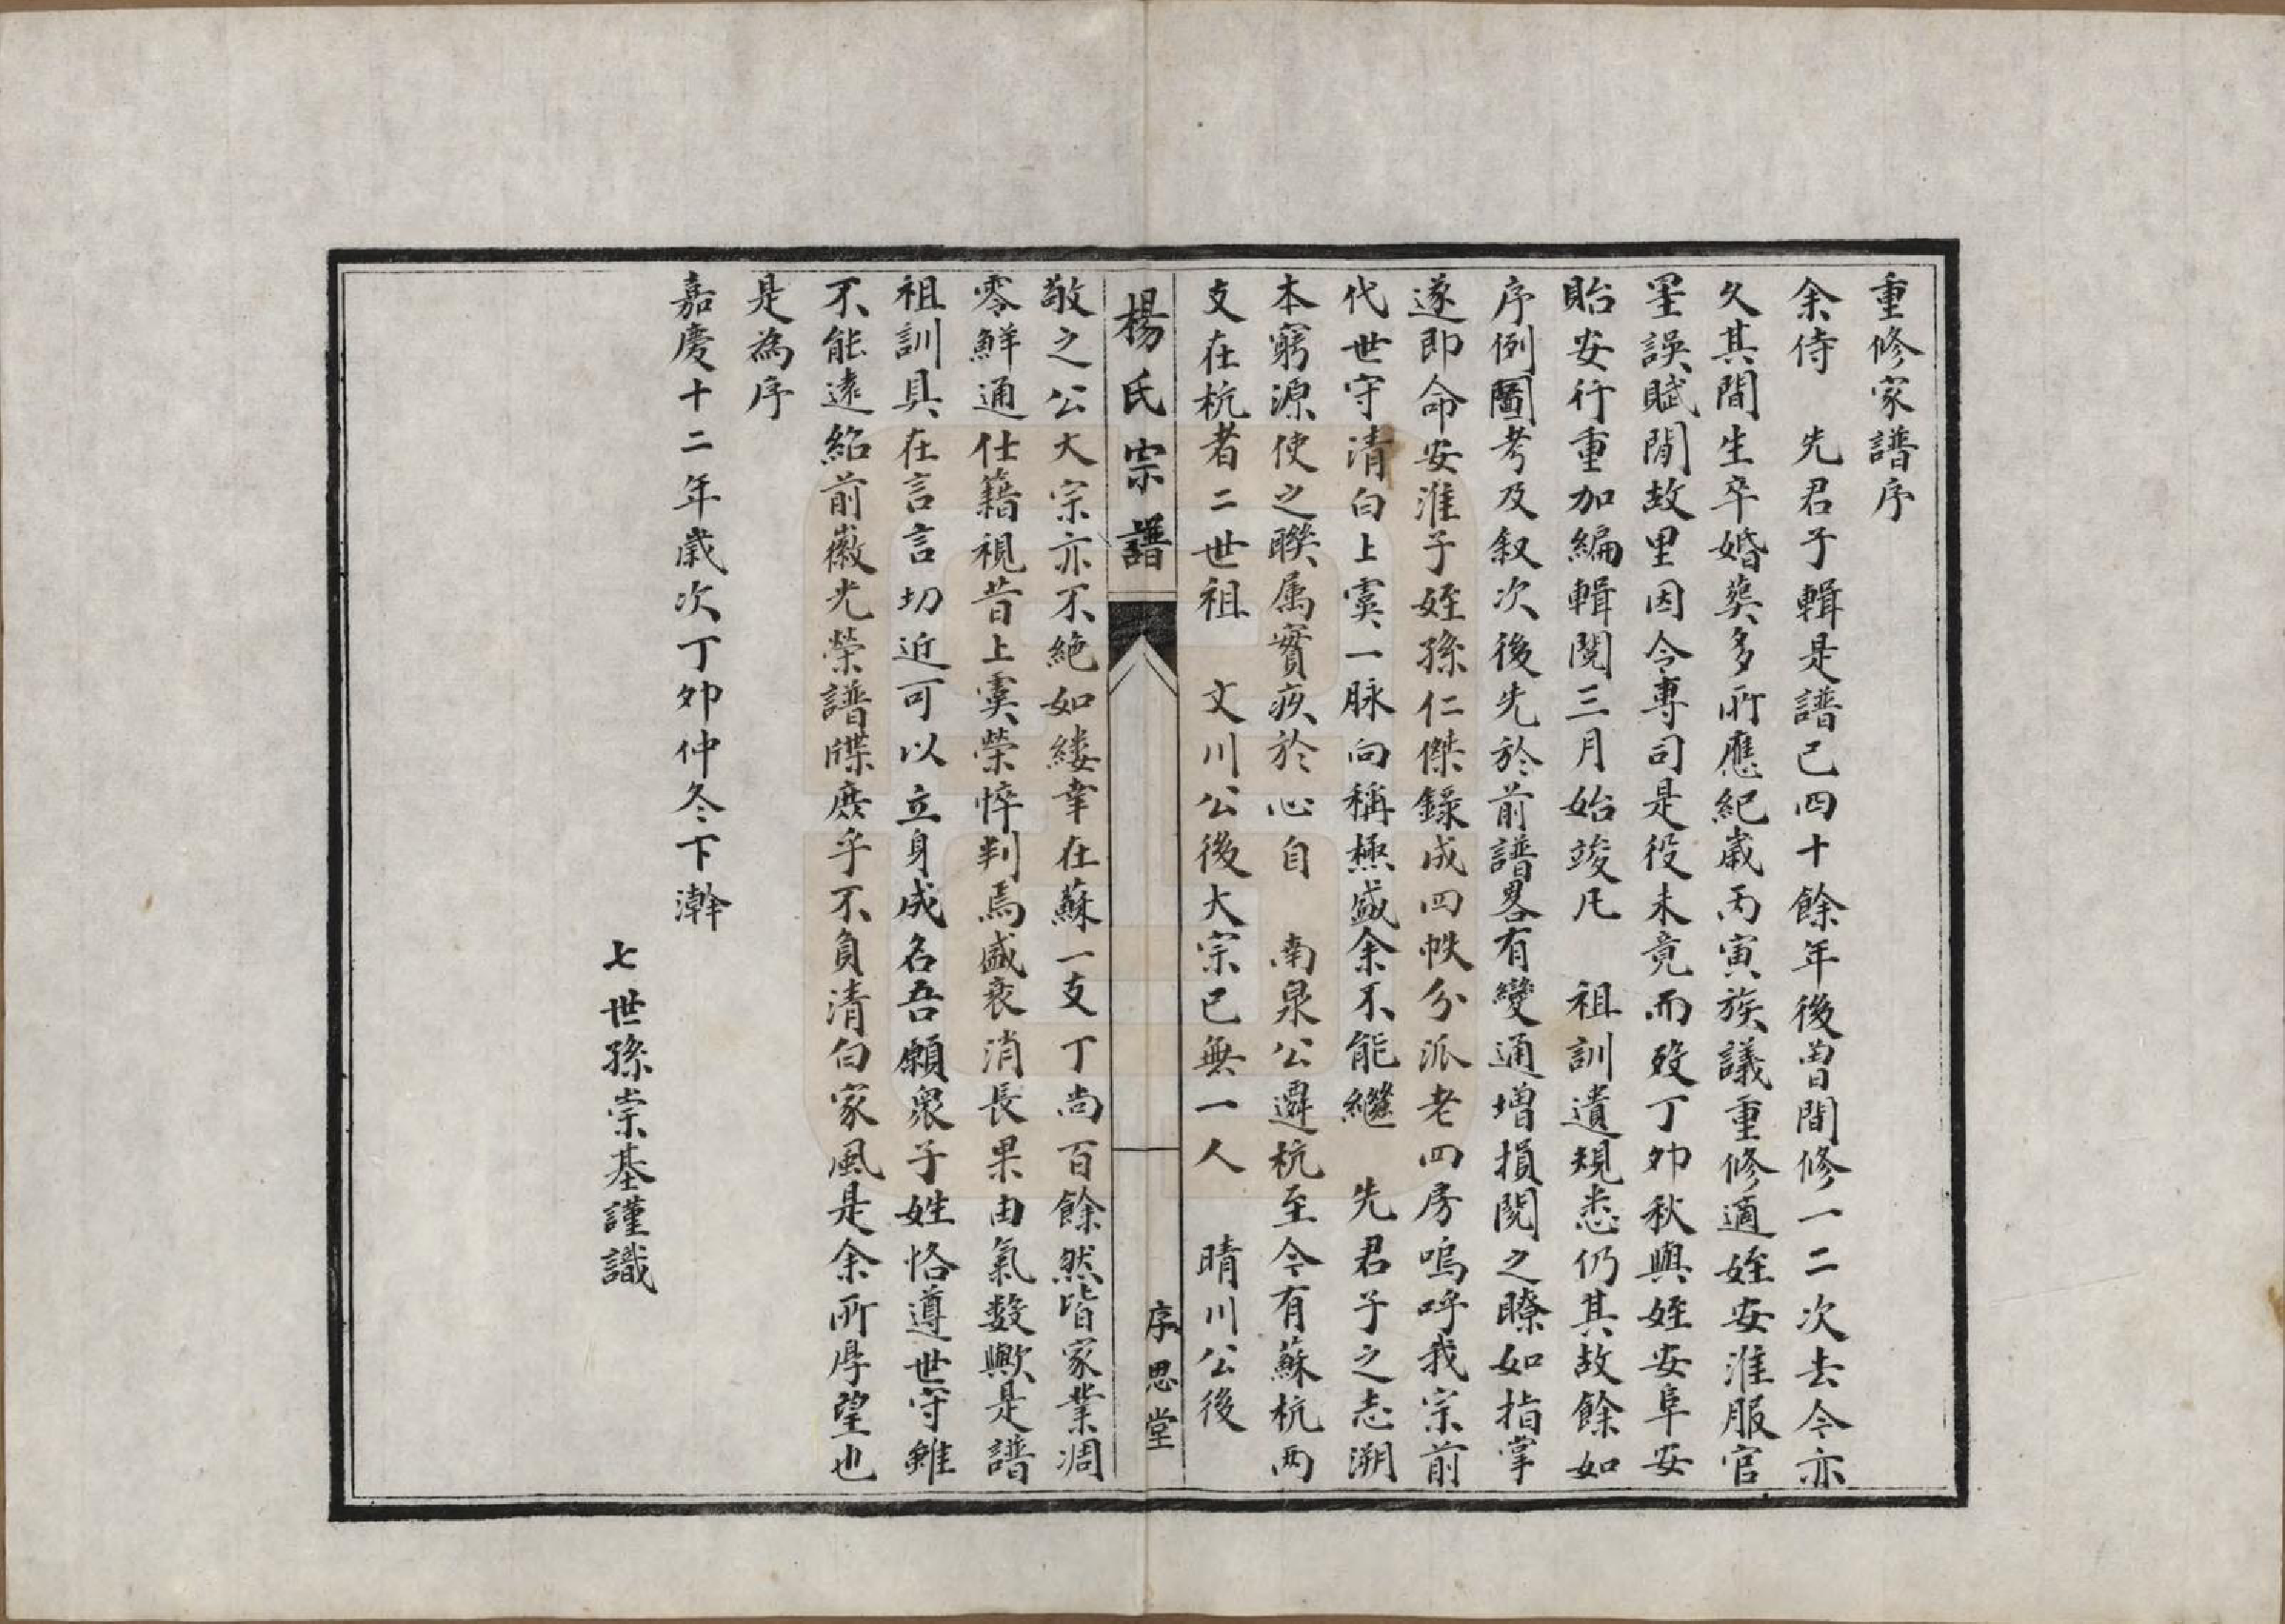 重修家譜序
余侍　先君子輯是譜已四十餘年後曾間修一二次去今亦
久其間生卒婚葬多所應紀歲丙寅族議重修適姪安淮服官
罣誤賦閒故里因令專司是役未竟而歿丁夘秋與姪安阜安
貽安行重加編輯閱三月始竣凡　祖訓遺規悉仍其故餘如
序例圖考及叙次後先於前譜畧有變通增損閱之瞭如指掌
遂即命安淮子姪孫仁傑錄成四帙分派老四房嗚呼我宗前
代世守清白上虞一脉向稱極盛余不能繼　先君子之志溯
本窮源使之聯属實疚於心自　南泉公遷杭至今有蘇杭兩
支在杭者二世祖　文川公後大宗已無一人　晴川公後
楊氏宗譜
序思堂
敬之公大宗亦不絶如縷幸在蘇一支丁尚百餘然皆家業凋
零鮮通仕籍視昔上虞榮悴判焉盛衰消長果由氣数歟是譜
祖訓具在言言切近可以立身成名吾願衆子姓恪遵世守雖
不能遠紹前徽光榮譜牒庶乎不負清白家風是余所厚望也
是為序
嘉慶十二年歲次丁夘仲冬下澣
七世孫崇基謹識